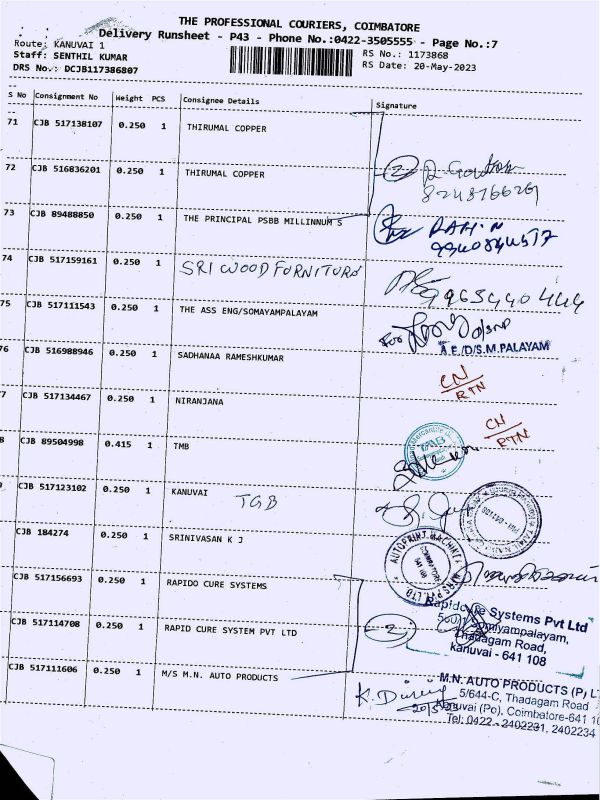 THE PROFESSIONAL COURIERS, COIMBATORE
Delivery Runsheet - P43 - Phone No.:0422-3505555 - Page No.:7
Route: KANUVAI 1
RS No.: 1173868
Staff: SENTHIL KUMAR
RS Date: 20-May-2023
DRS No.: DCJB117386807
S No Consignment No Weight PCS Consignee Details Signature
71 CJB 517138107 0.250 1 THIRUMAL COPPER
72 CJB 516836201 0.250 1 THIRUMAL COPPER
2
73 CJB 89488850 0.250 1 THE PRINCIPAL PSBB MILLINNUM S
74 CJB 517159161 0.250 1 SRI WOOD FURNITURE
9965440444
75 CJB 517111543 0.250 1 THE ASS ENG/SOMAYAMPALAYAM
For
A.E./D/S.M.PALAYAM
76 CJB 516988946 0.250 1 SADHANAA RAMESHKUMAR
CN
RTN
7 CJB 517134467 0.250 1 NIRANJANA
CN
RTN
8 CJB 89504998 0.415 1 TMB
CJB 517123102 0.250 1 KANUVAI
TGB
CJB 184274 0.250 1 SRINIVASAN K J
AUTOPRINT MACHINERY
PVT LTD
CJB 517156693 0.250 1 RAPIDO CURE SYSTEMS
Rapidcure Systems Pvt Ltd
Somiyampalayam,
Thadagam Road,
kanuvai - 641 108
CJB 517114708 0.250 1 RAPID CURE SYSTEM PVT LTD
2
CJB 517111606 0.250 1 M/S M.N. AUTO PRODUCTS
M.N. AUTO PRODUCTS (P) L
5/644-C, Thadagam Road
Kanuvai (Po), Coimbatore-641 10
Tel: 0422 - 2402231, 2402234
20/5/23